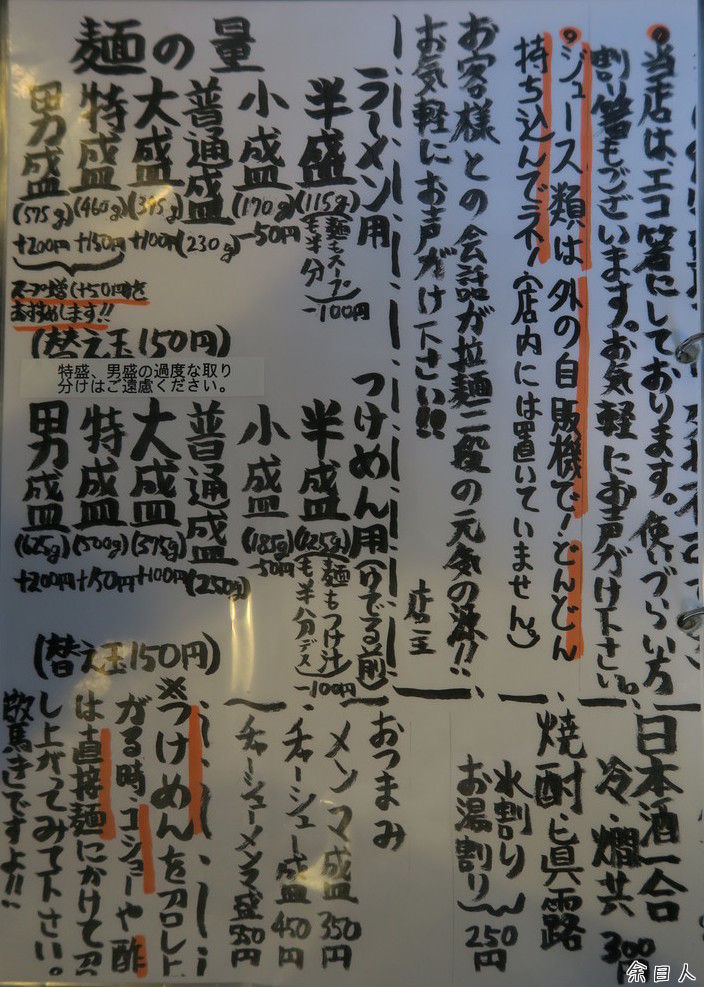 ・当店は、エコ箸にしております。使いづらい方
割り箸もございます。お気軽にお声がけ下さい。
・ジュース類は外の自販機で!どんどん
持ち込んで下さい(店内には置いていません)
お客様との会話が拉麺二段の元気の源!!
お気軽にお声がけ下さい!!
店主
麺の量
ラーメン用
半盛(115g)(麺もスープも半分)-100円
小盛(170g)-50円
普通盛(230g)
大盛(345g)+100円
特盛(460g)+150円
男盛(575g)+200円
スープ増し(+50円)を
おすすめします!!
(替え玉150円)
特盛、男盛の過度な取り
分けはご遠慮ください。
つけめん用(ゆでる前)
半盛(125g)(麺もつけ汁も半分デス)-100円
小盛(185g)-50円
普通盛(250g)
大盛(375g)+100円
特盛(500g)+150円
男盛(625g)+200円
(替え玉150円)
日本酒一合
冷・燗共 300円
焼酎・眞露
水割り
お湯割り 250円
おつまみ
メンマ盛 350円
チャーシュー盛 450円
チャーシューメンマ盛 550円
※つけめんを召し上
がる時・コショーや酢
は直接麺にかけて召
し上がってみて下さい。
驚きですよ!!
余目人